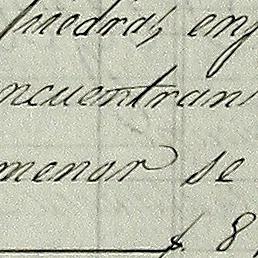 piedras, en
ncuentran
menor se
$ 8,